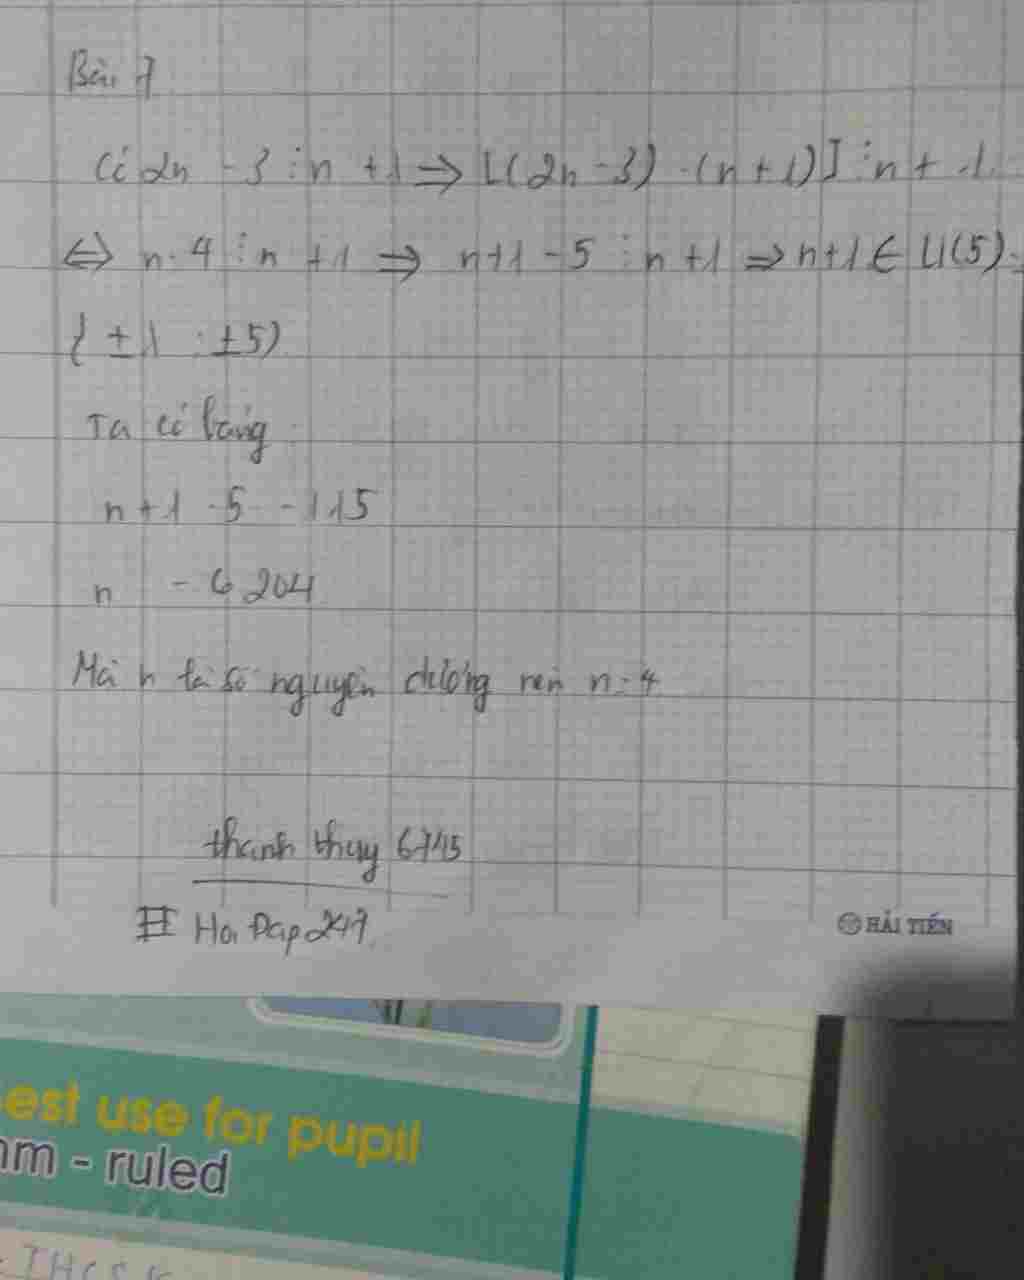 Bài 7
Có 2n - 3 ⋮ n + 1 ⇒ [(2n - 3) - (n + 1)] ⋮ n + 1
⇔ n - 4 ⋮ n + 1 ⇒ n+1 - 5 ⋮ n + 1 ⇒ n+1 ∈ Ư(5) =
{ ±1 ; ±5)
Ta có bảng
n+1 -5 -1 1 5
n - 6 2 0 4
Mà n là số nguyên dương nên n = 4
thanh thuy 6745
# Hoi Dap 247
HẢI TIẾN
est use for pupil
mm - ruled
THCS